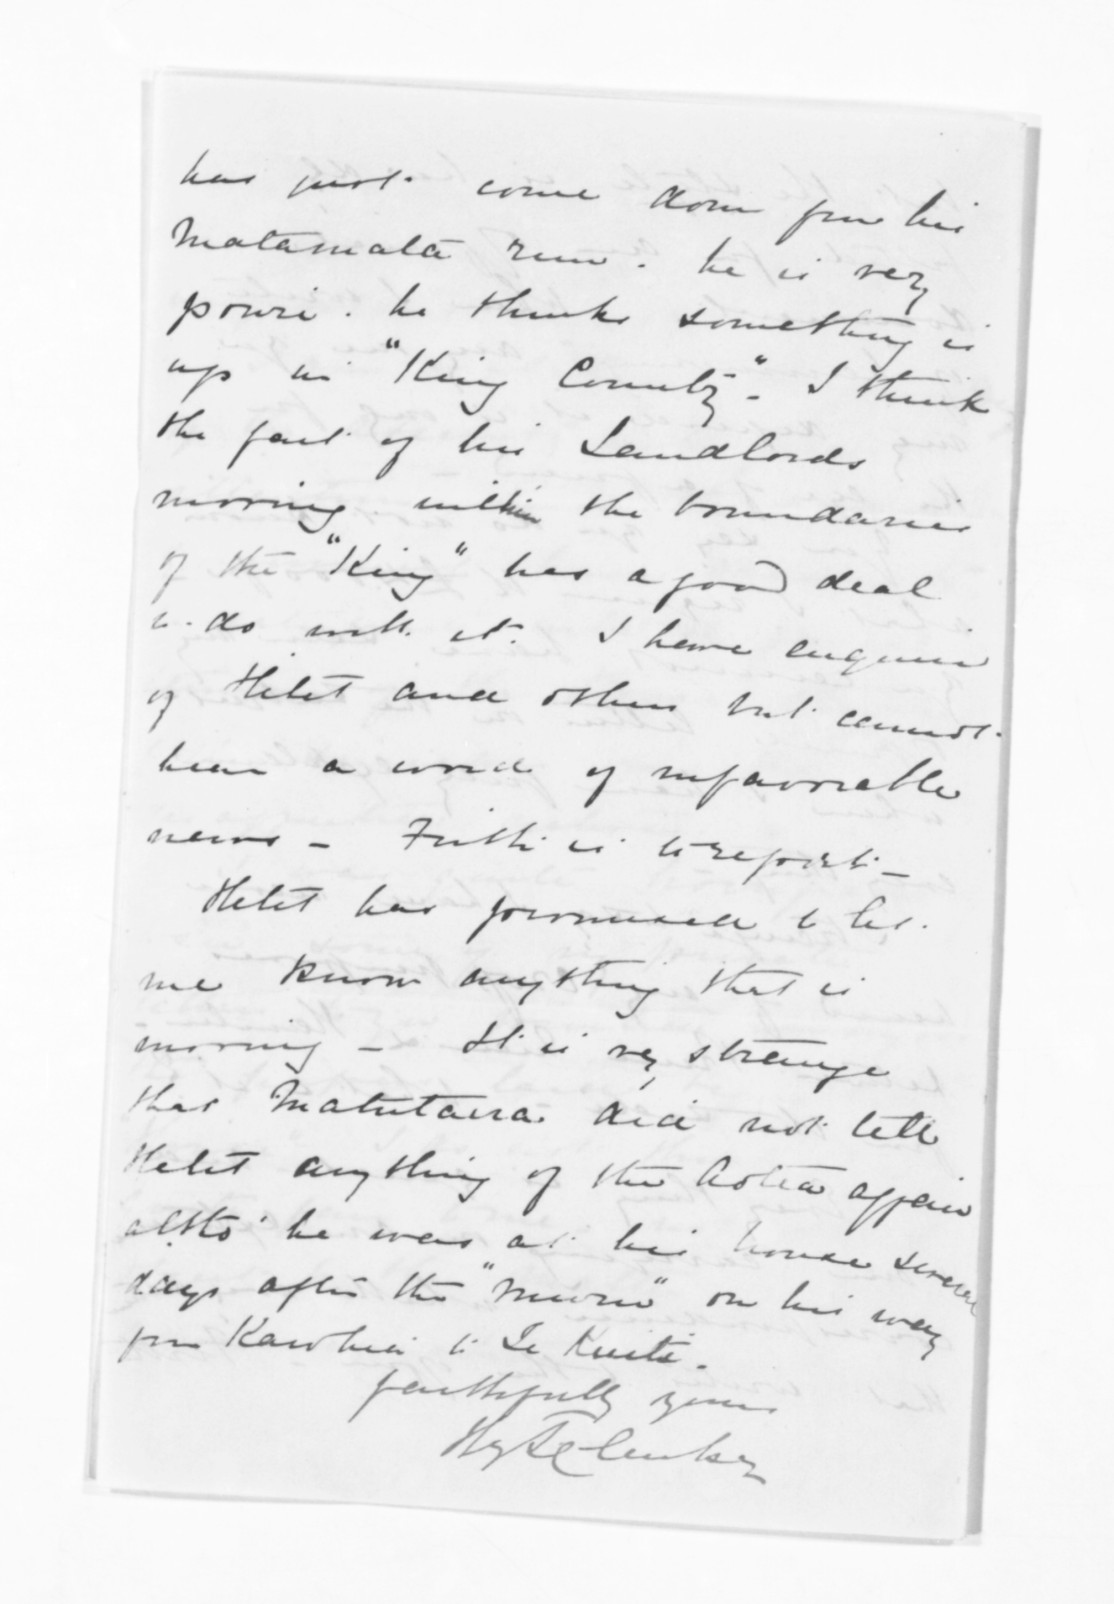 has just come down from his
Matamata run. he is very
pouri. he thinks something is
up in "King Country". I think
the fact of his Landlords
moving within the boundaries
of the "King" has a good deal
to do with it. I have enquired
of Hetet and others but cannot
hear a word of unfavorable
news - Firth is to report -
Hetet has promised to let
me know anything that is
moving - It is very strange
that Matutaera did not tell
Hetet anything of the Aotea affair
altho' he was at his house several
days after the "muru" on his way
from Kawhia to Te Kuiti.
faithfully yours
Hy T Clarke